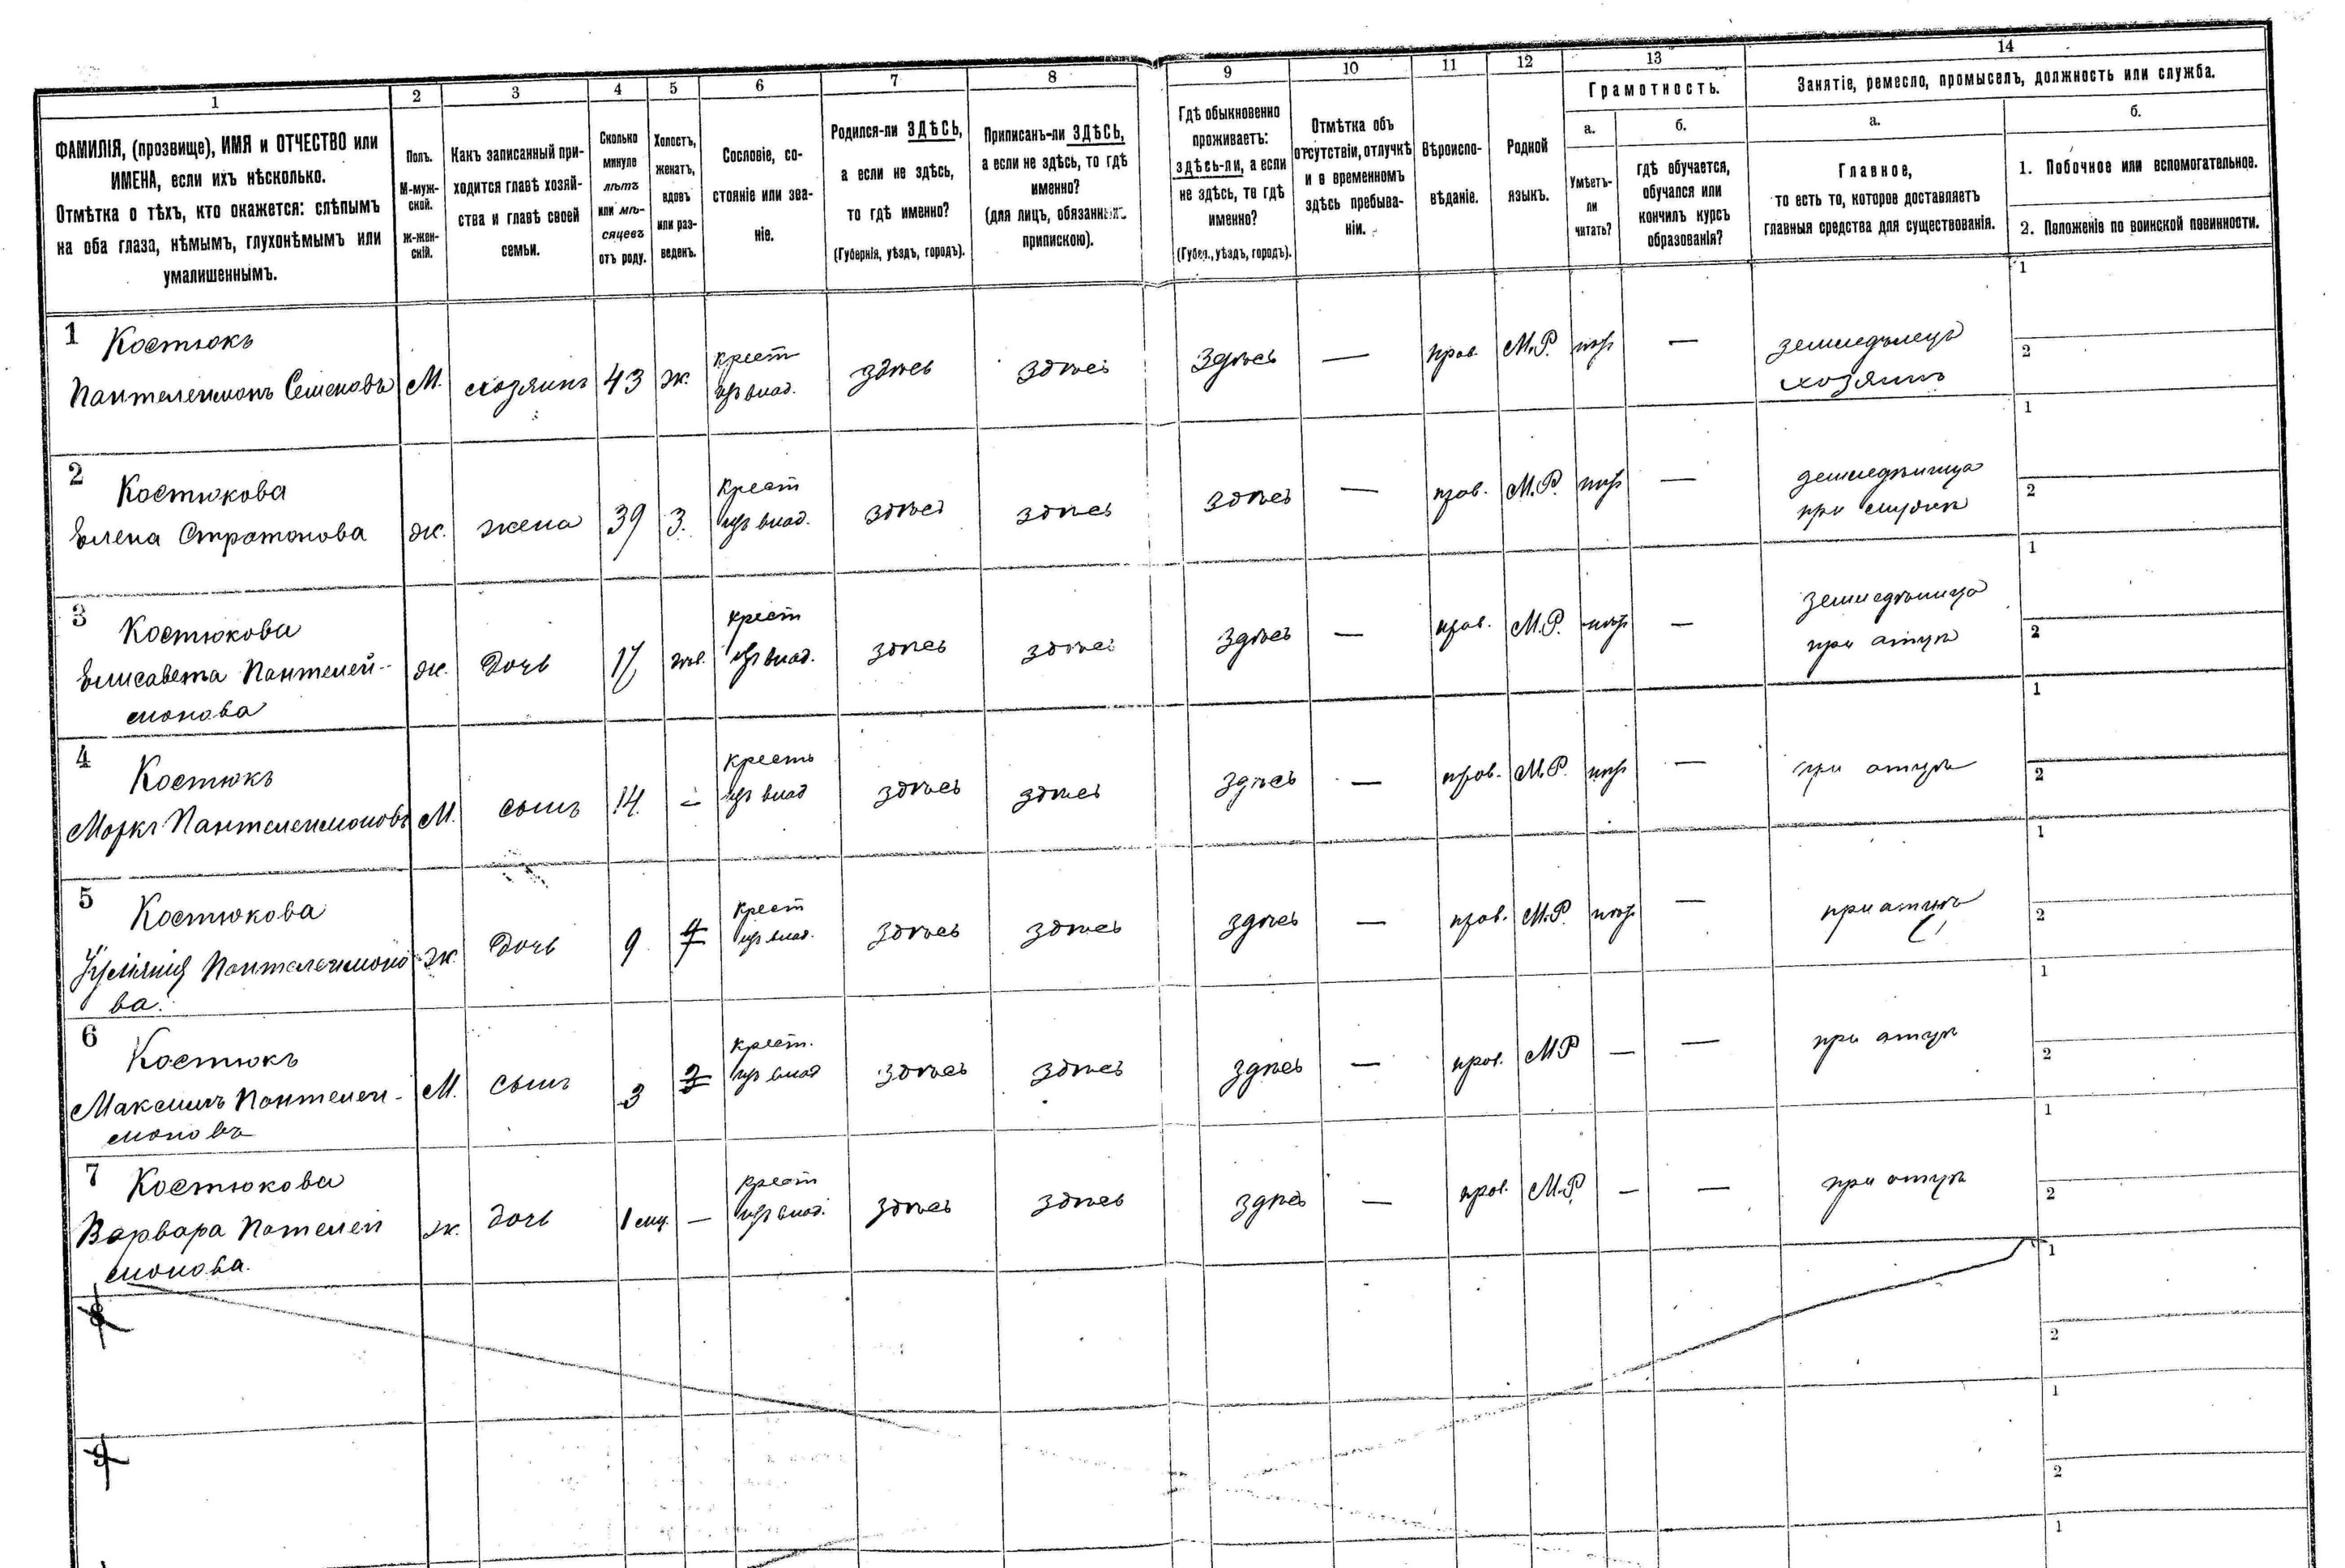 1 2 3 4 5 6 7 8 9 10 11 12 13 14
ФАМИЛІЯ, (прозвище), ИМЯ и ОТЧЕСТВО или
ИМЕНА, если ихъ нѣсколько.
Отмѣтка о тѣхъ, кто окажется: слѣпымъ
на оба глаза, нѣмымъ, глухонѣмымъ или
умалишеннымъ.
Полъ.
М-муж-
ской.
Ж-жен-
скій.
Какъ записанный при-
ходится главѣ хозяй-
ства и главѣ своей
семьи.
Сколько
минуло
лѣтъ
или мѣ-
сяцевъ
отъ роду.
Холостъ,
женатъ,
вдовъ
или раз-
веденъ.
Сословіе, со-
стояніе или зва-
ніе.
Родился-ли ЗДѢСЬ,
а если не здѣсь,
то гдѣ именно?
(Губернія, уѣздъ, городъ).
Приписанъ-ли ЗДѢСЬ,
а если не здѣсь, то гдѣ
именно?
(для лицъ, обязанныхъ
припискою).
Гдѣ обыкновенно
проживаетъ:
здѣсь-ли, а если
не здѣсь, то гдѣ
именно?
(Губер., уѣздъ, городъ).
Отмѣтка объ
отсутствіи, отлучкѣ
и о временномъ
здѣсь пребыва-
ніи.
Вѣроиспо-
вѣданіе.
Родной
языкъ.
Грамотность.
а.
Умѣетъ-
ли
читать?
б.
гдѣ обучается,
обучался или
кончилъ курсъ
образованія?
Занятіе, ремесло, промыселъ, должность или служба.
а.
Главное,
то есть то, которое доставляетъ
главныя средства для существованія.
б.
1. Побочное или вспомогательное.
2. Положеніе по воинской повинности.
1 Костюкъ
Пантелеимонъ Семеновъ М. хозяинъ 43 ж. крест изъ влад. здѣсь здѣсь здѣсь — прав. М.Р. нѣт — земледѣлецъ
хозяинъ
1
2
2 Костюкова
Елена Стратонова ж. жена 39 З. Крест изъ влад. здѣсь здѣсь здѣсь — прав. М.Р. нѣт — земледѣлица
при
1
2
3 Костюкова
Елисавета Пантелей-
монова ж. Дочь 17 крест изъ влад. здѣсь здѣсь здѣсь — прав. М.Р. нѣт — земледѣлица
при отцѣ
1
2
4 Костюкъ
Маркъ Пантелеимоновъ М. сынъ 14. — крестъ изъ влад здѣсь здѣсь здѣсь — прав. М.Р. нѣт — при отцѣ
1
2
5 Костюкова
Пантелеимоно
ва. ж. Дочь 9 крест изъ влад. здѣсь здѣсь здѣсь — прав. М.Р. нѣт — при отцѣ
1
2
6 Костюкъ
Максимъ Пантелеи-
моновъ М. сынъ 3 крест. изъ влад здѣсь здѣсь здѣсь — прав. МР — — при отцѣ
1
2
7 Костюкова
Варвара Пателеи
монова. ж. дочь 1 мц. — крест изъ влад. здѣсь здѣсь здѣсь — прав. М.Р. — — при отцѣ
1
2
8
1
2
9
1
2
1